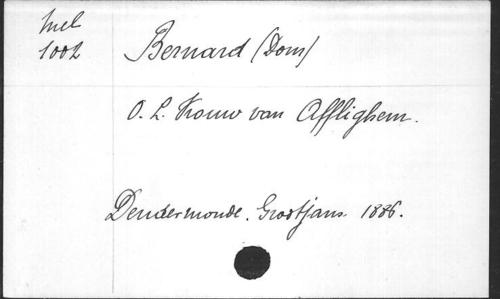 Mel
1002
Bernard (Dom)
O. L. Vrouw van Afflighem.
Dendermonde. Grootjans. 1886.